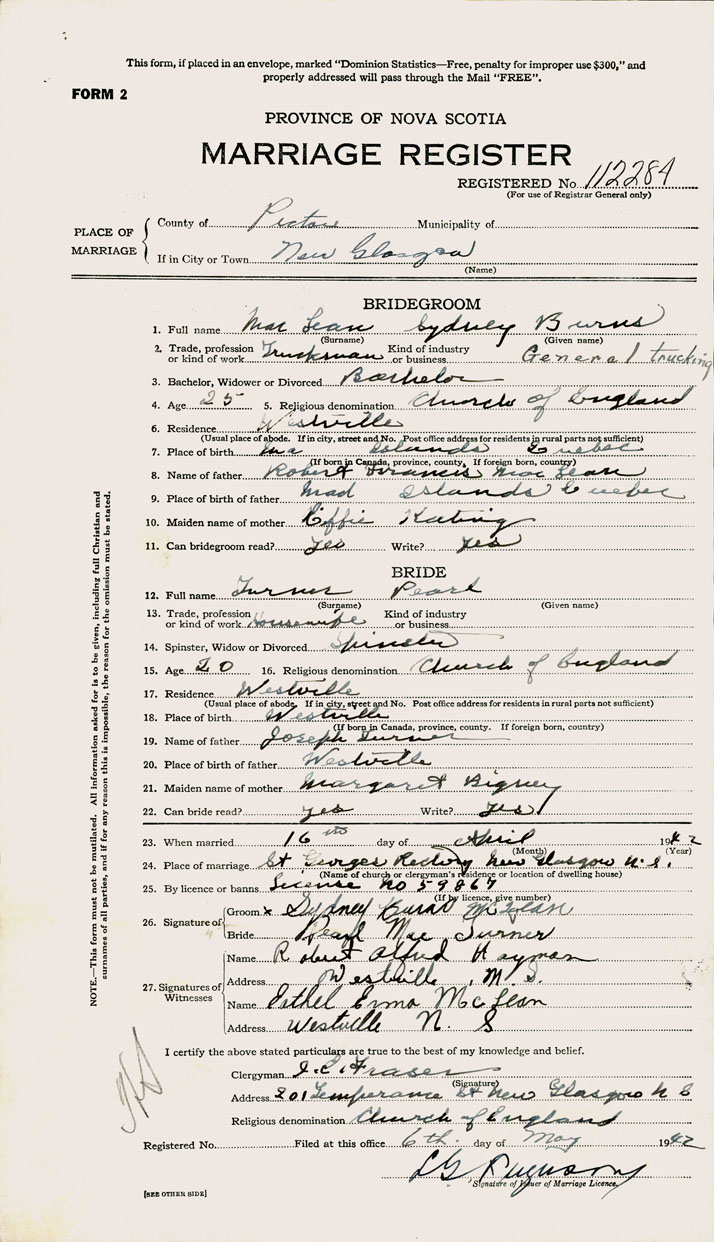 This form, if placed in an envelope, marked "Dominion Statistics—Free, penalty for improper use $300," and
properly addressed will pass through the Mail "FREE".
FORM 2
PROVINCE OF NOVA SCOTIA
MARRIAGE REGISTER
REGISTERED No. 112284
(For use of Registrar General only)
PLACE OF MARRIAGE
County of Pictou Municipality of
If in City or Town New Glasgow
(Name)
BRIDEGROOM
1. Full name Mac Lean Sydney Burns
(Surname) (Given name)
2. Trade, profession or kind of work Truckman Kind of industry or business General trucking
3. Bachelor, Widower or Divorced Bachelor
4. Age 25 5. Religious denomination Church of England
6. Residence Westville
(Usual place of abode. If in city, street and No. Post office address for residents in rural parts not sufficient)
7. Place of birth Islands Quebec
(If born in Canada, province, county. If foreign born, country)
8. Name of father Robert Francis Mac Lean
9. Place of birth of father Mad Islands Quebec
10. Maiden name of mother Effie Kating
11. Can bridegroom read? yes Write? yes
BRIDE
12. Full name Turner Pearl
(Surname) (Given name)
13. Trade, profession or kind of work Housewife Kind of industry or business
14. Spinster, Widow or Divorced Spinster
15. Age 20 16. Religious denomination Church of England
17. Residence Westville
(Usual place of abode. If in city, street and No. Post office address for residents in rural parts not sufficient)
18. Place of birth Westville
(If born in Canada, province, county. If foreign born, country)
19. Name of father Joseph Turner
20. Place of birth of father Westville
21. Maiden name of mother Margaret Bigney
22. Can bride read? yes Write? yes
23. When married 16th day of April 1942
(Month) (Year)
24. Place of marriage St Georges Rectory New Glasgow N.S.
(Name of church or clergyman's residence or location of dwelling house)
25. By licence or banns License no 59867
(If by licence, give number)
26. Signature of
Groom x Sydney McLean
Bride Pearl Mae Turner
27. Signatures of Witnesses
Name Robert Alfred Hayman
Address Westville, N.S.
Name Ethel Erma McLean
Address Westville N. S
I certify the above stated particulars are true to the best of my knowledge and belief.
Clergyman Fraser
(Signature)
Address 201 Temperance St New Glasgow N S
Religious denomination Church of England
Registered No. Filed at this office 6th day of May 1942
Signature of Issuer of Marriage Licence.
[SEE OTHER SIDE]
NOTE.—This form must not be mutilated. All information asked for is to be given, including full Christian and
surnames of all parties, and if for any reason this is impossible, the reason for the omission must be stated.